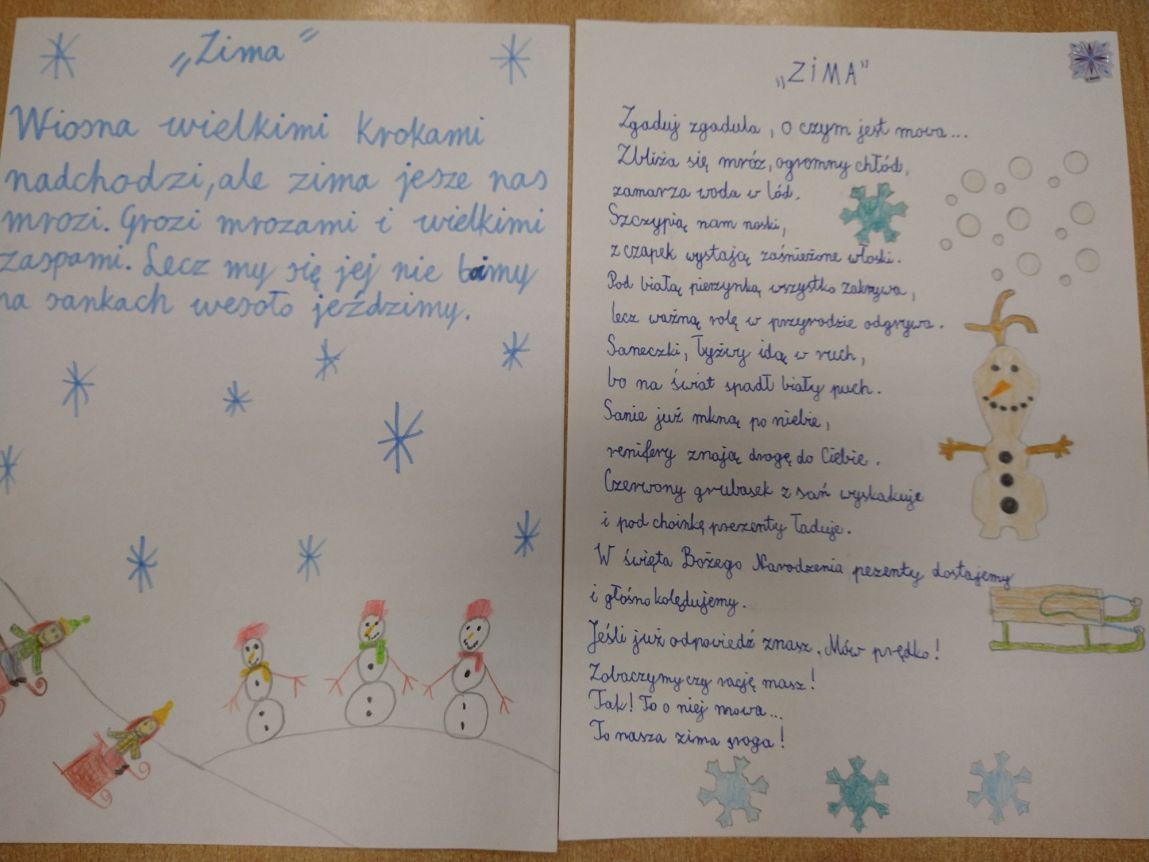 „Zima”
Wiosna wielkimi krokami
nadchodzi, ale zima jesze nas
mrozi. Grozi mrozami i wielkimi
zaspami. Lecz my się jej nie boimy
na sankach wesoło jeździmy.
„ZiMA”
Zgaduj zgadula, o czym jest mowa...
Zbliża się mróz, ogromny chłód,
zamarza woda w lód.
Szczypią nam noski,
z czapek wystają zaśnieżone włoski.
Pod białą pierzynką wszystko zakrywa,
lecz ważną rolę w przyrodzie odgrywa.
Saneczki, łyżwy idą w ruch,
bo na świat spadł biały puch.
Sanie już mkną po niebie,
renifery znają drogę do Ciebie.
Czerwony grubasek z sań wyskakuje
i pod choinkę prezenty ładuje.
W święta Bożego Narodzenia pezenty dostajemy
i głośno kolędujemy.
Jeśli już odpowiedź znasz, Mów prędko!
Zobaczymy czy rację masz!
Tak! To o niej mowa...
To nasza zima sroga!